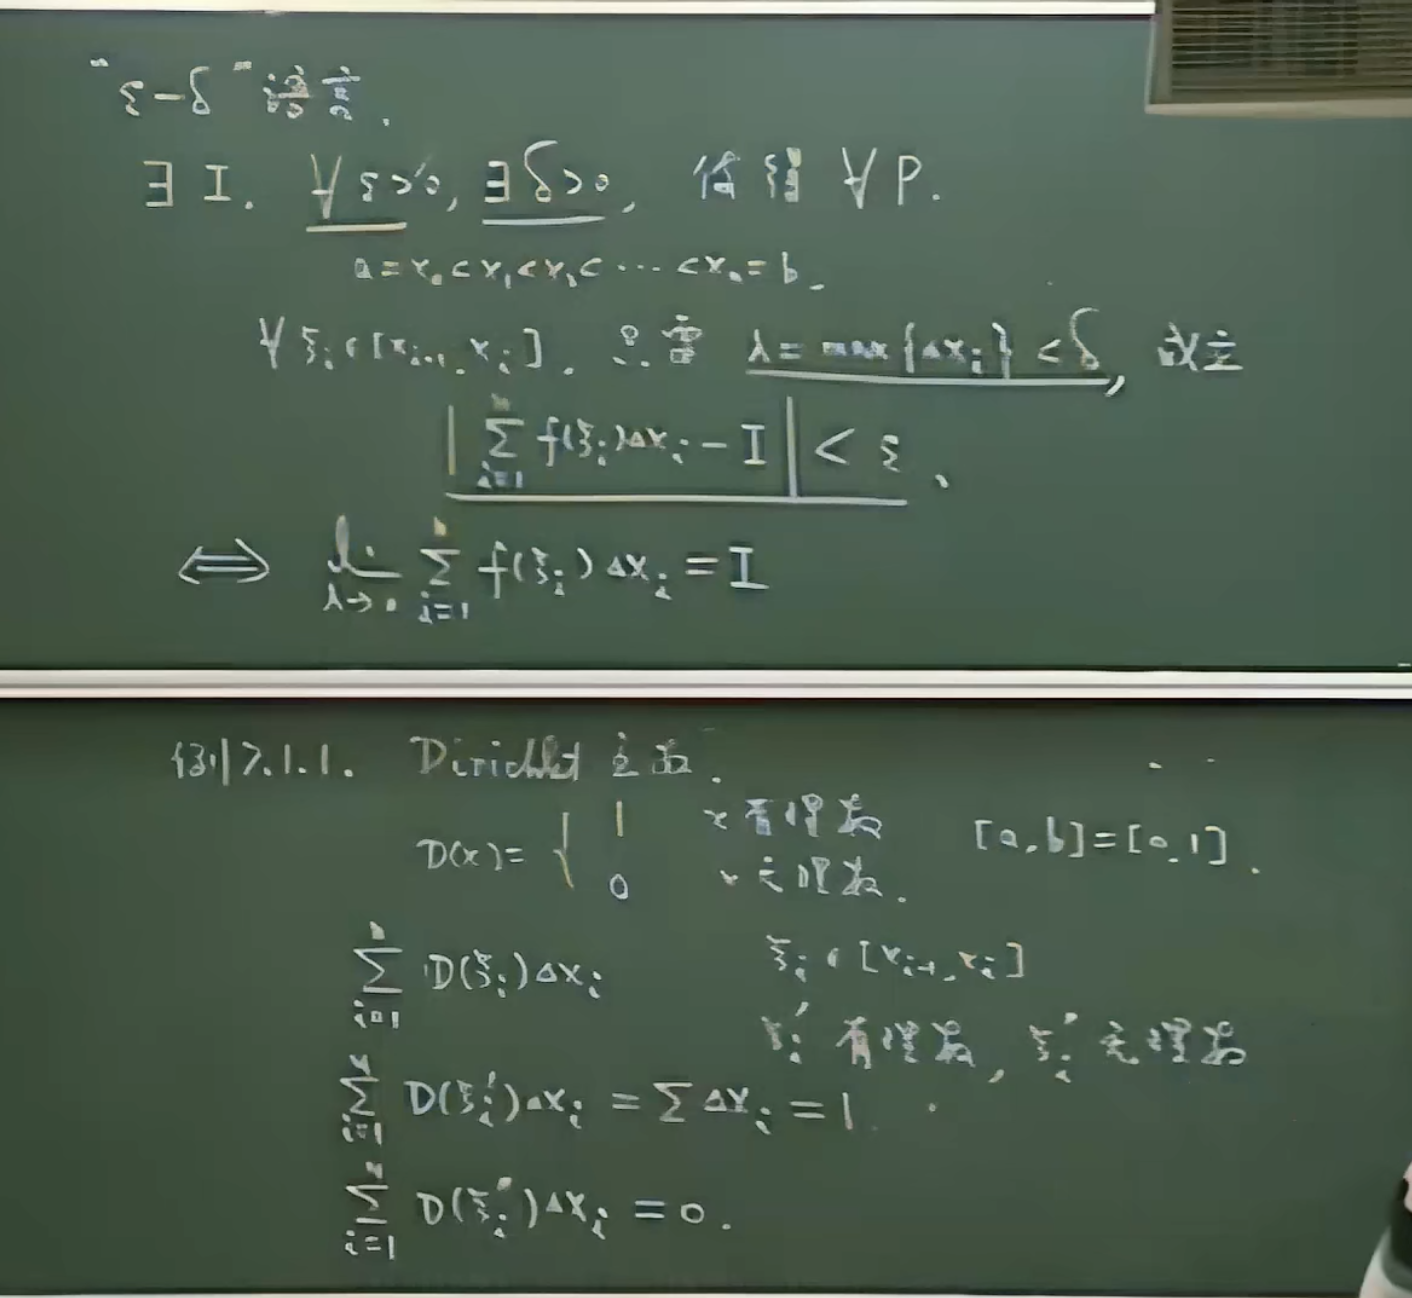 “ε-δ”语言.
∃ I. ∀ε>0, ∃δ>0, 使得 ∀P.
a=x₀<x₁<x₂<⋯<xₙ=b.
∀ξᵢ∈[xᵢ₋₁, xᵢ]. 只需 λ=max{Δxᵢ}<δ, 成立
|∑ᵢ₌₁ⁿ f(ξᵢ)Δxᵢ-I|<ε.
⟺ lim_{λ→0} ∑ᵢ₌₁ⁿ f(ξᵢ)Δxᵢ=I
例7.1.1. Dirichlet 函数.
D(x)={ 1 x有理数 [a,b]=[0,1].
0 x无理数.
∑ᵢ₌₁ⁿ D(ξᵢ)Δxᵢ ξᵢ∈[xᵢ₋₁, xᵢ]
ξᵢ′ 有理数, ξᵢ″ 无理数
∑ᵢ₌₁ⁿ D(ξᵢ′)Δxᵢ=∑Δxᵢ=1.
∑ᵢ₌₁ⁿ D(ξᵢ″)Δxᵢ=0.